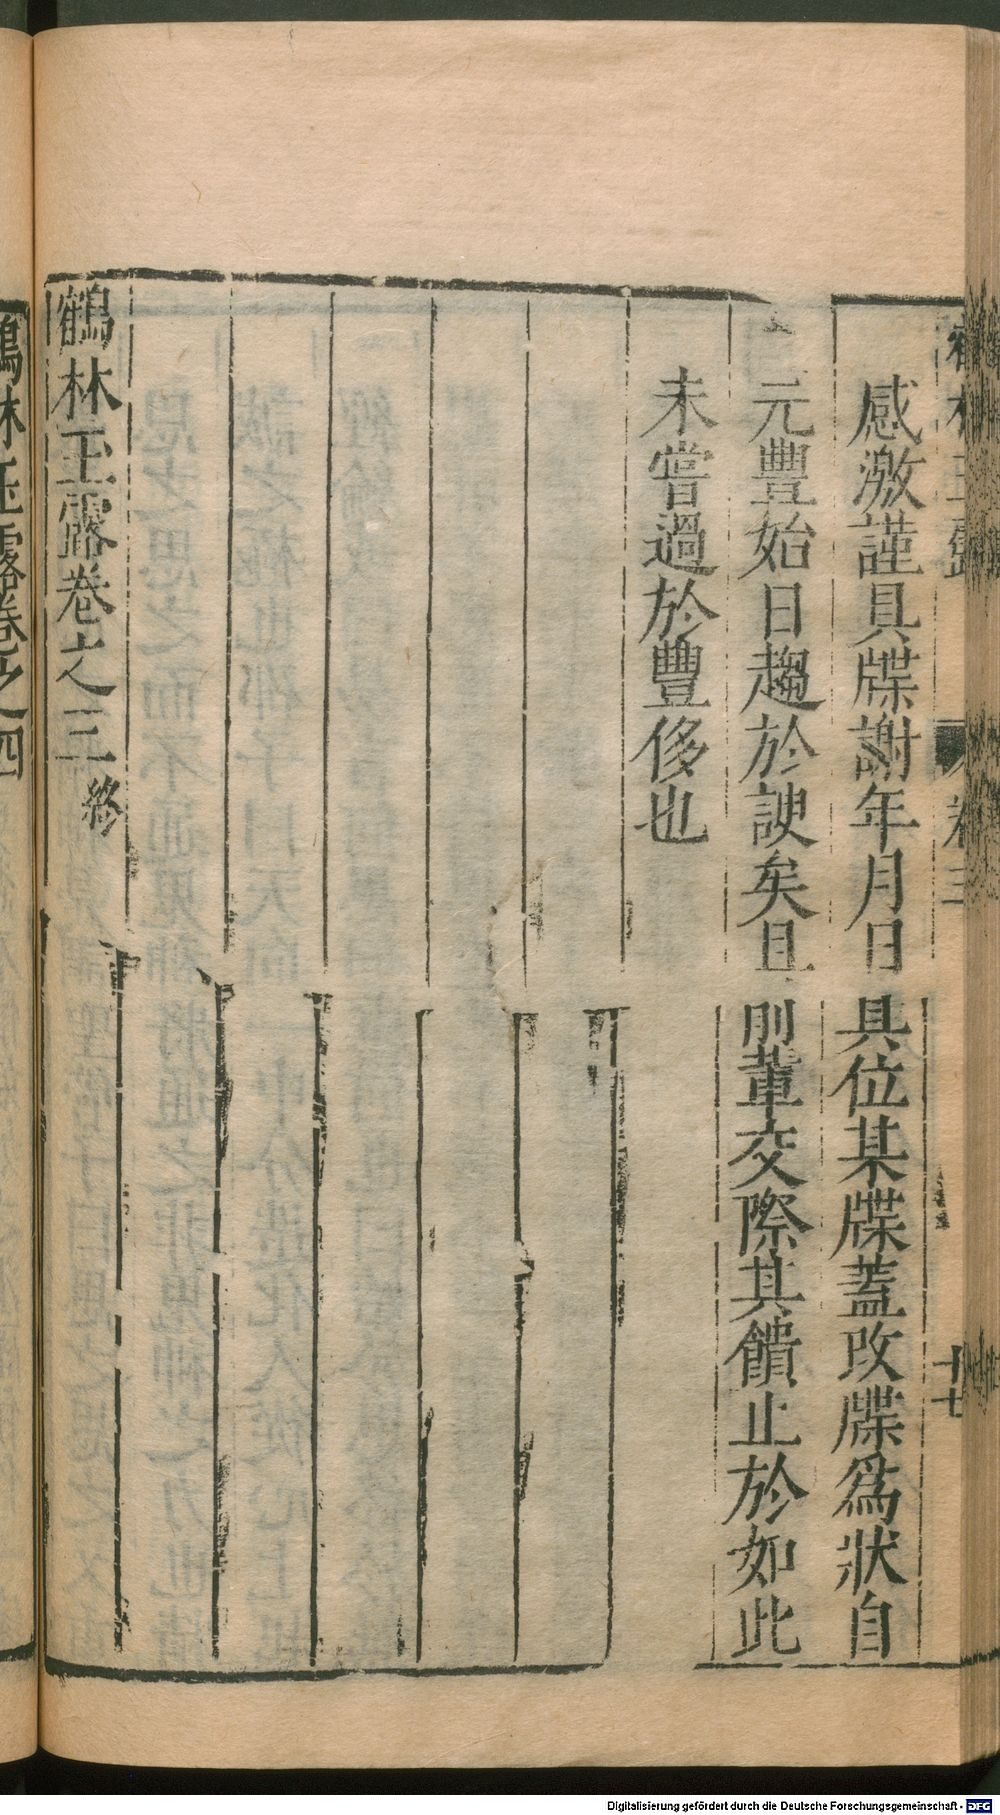 鶴林玉露
卷三
十七
感激謹具牒謝年月日具位某牒蓋改牒為狀自
元豐始日趨於諛矣且前輩交際其饋止於如此
未嘗過於豐侈也
鶴林玉露卷之三終
鶴林玉露卷之四
Digitalisierung gefördert durch die Deutsche Forschungsgemeinschaft - DFG